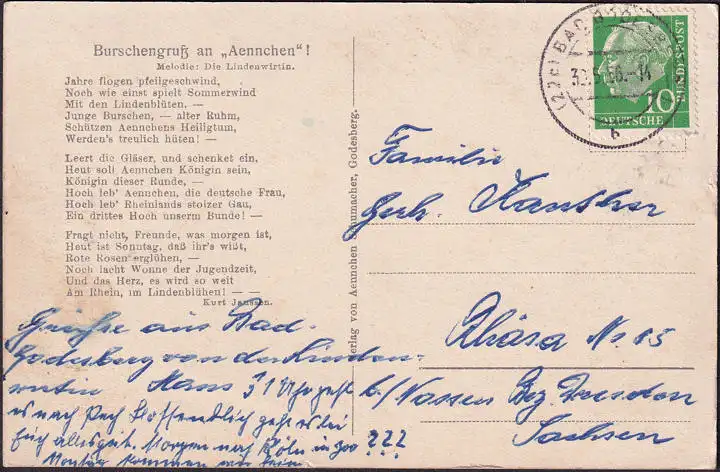 Burschengruß an „Aennchen"!
Melodie: Die Lindenwirtin.
Jahre flogen pfeilgeschwind,
Noch wie einst spielt Sommerwind
Mit den Lindenblüten, —
Junge Burschen, — alter Ruhm,
Schützen Aennchens Heiligtum,
Werden's treulich hüten! —
Leert die Gläser, und schenket ein,
Heut soll Aennchen Königin sein,
Königin dieser Runde, —
Hoch leb' Aennchen, die deutsche Frau,
Hoch leb' Rheinlands stolzer Gau,
Ein drittes Hoch unserm Bunde! —
Fragt nicht, Freunde, was morgen ist,
Heut ist Sonntag, daß ihr's wißt,
Rote Rosen erglühen, —
Noch lacht Wonne der Jugendzeit,
Und das Herz, es wird so weit
Am Rhein, im Lindenblühen! —
Kurt Janssen.
Grüße aus Bad-
Godesberg von der Linden-
wirtin Hans 31 Uhr geht
es nach Hoffendlich geht es bei
Euch alles gut. Morgen nach Köln in Zoo ???
Montag kommen wir heim
Verlag von Aennchen Schumacher, Godesberg.
(22c) BAD
30.5.56.-14
b
10
DEUTSCHE
BUNDESPOST
Familie
Gerh.
Rhäsa Nr. 15
b./ Nossen Bez Dresden
Sachsen